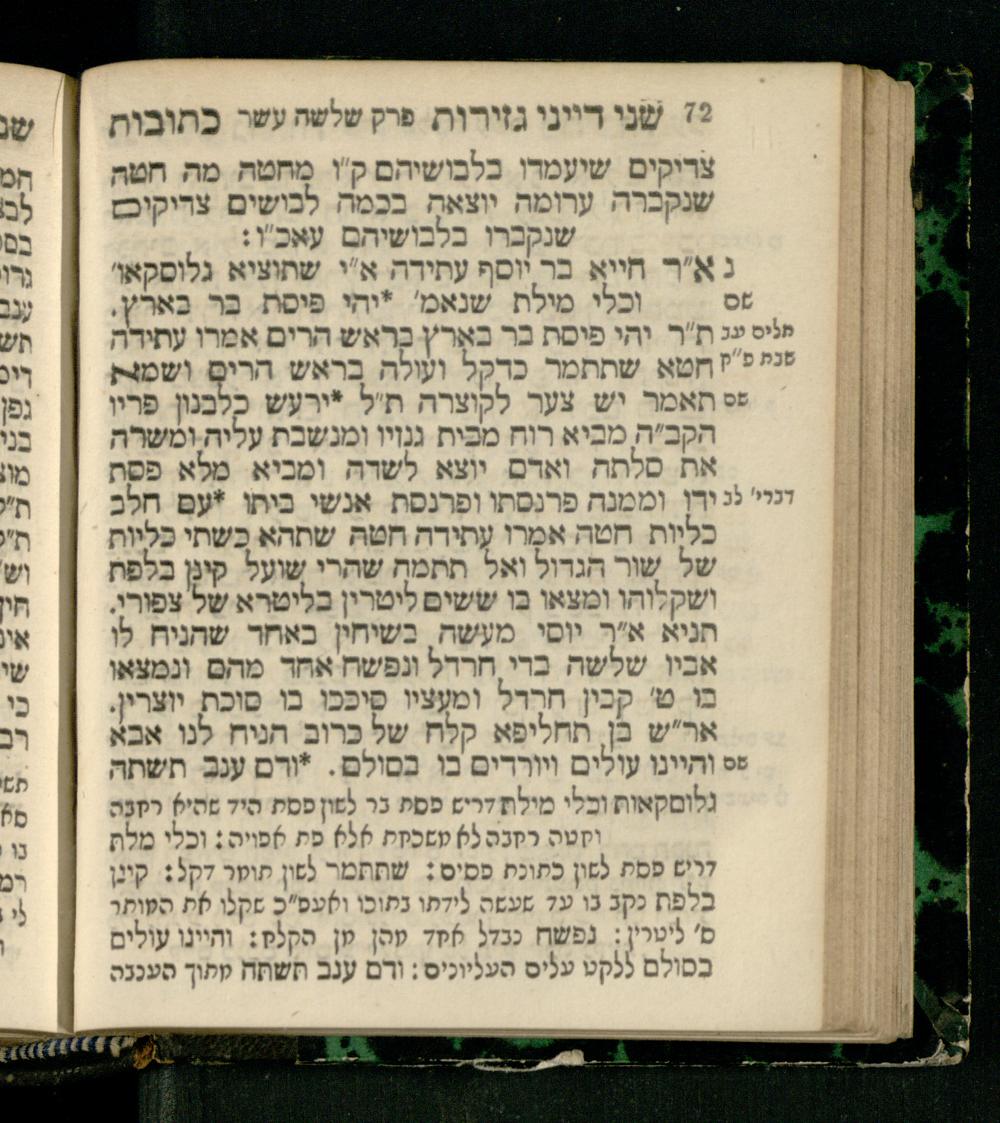 72 שני דייני גזירות פרק שלשה עשר כתובות
צדיקים שיעמדו בלבושיהם ק"ו מחטה מה חטה
שנקברה ערומה יוצאה בכמה לבושים צדיקים
שנקברו בלבושיהם עאכ"ו:
נ א"ר חייא בר יוסף עתידה א"י שתוציא גלוסקאו'
שם וכלי מילת שנאמ' *יהי פיסת בר בארץ.
תלים עב ת"ר יהי פיסת בר בארץ בראש הרים אמרו עתידה
שבת פ"ק חטא שתתמר כדקל ועולה בראש הרים ושמא
שם תאמר יש צער לקוצרה ת"ל *ירעש כלבנון פריו
הקב"ה מביא רוח מבית גנזיו ומנשבת עליה ומשרה
את סלתה ואדם יוצא לשדה ומביא מלא פסת
דברי' לב ידו וממנה פרנסתו ופרנסת אנשי ביתו *עם חלב
כליות חטה אמרו עתידה חטה שתהא כשתי כליות
של שור הגדול ואל תתמה שהרי שועל קינן בלפת
ושקלוהו ומצאו בו ששים ליטרין בליטרא של צפורי.
תניא א"ר יוסי מעשה בשיחין באחד שהניח לו
אביו שלשה בדי חרדל ונפשח אחד מהם ונמצאו
בו ט' קבין חרדל ומעציו סיככו בו סוכת יוצרין.
אר"ש בן תחליפא קלח של כרוב הניח לנו אבא
שם והיינו עולים ויורדים בו בסולם. *ודם ענב תשתה
גלוסקאות וכלי מילת דריש פסת בר לשון פסת היד שהיא רחבה
וחטה רחבה לא משכחת אלא פת אפויה: וכלי מלת
דריש פסת לשון כתונת פסים: שתתמר לשון תומר דקל: קינן
בלפת נקב בו עד שעשה לידתו בתוכו ואעפ"כ שקלו את המותר
ס' ליטרין: נפשח נבדל אחד מהן מן הקלח: והיינו עולים
בסולם ללקט עלים העליונים: ודם ענב תשתה מתוך הענבה